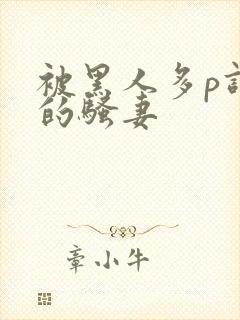 被黑人多p
的骚妻
章小牛